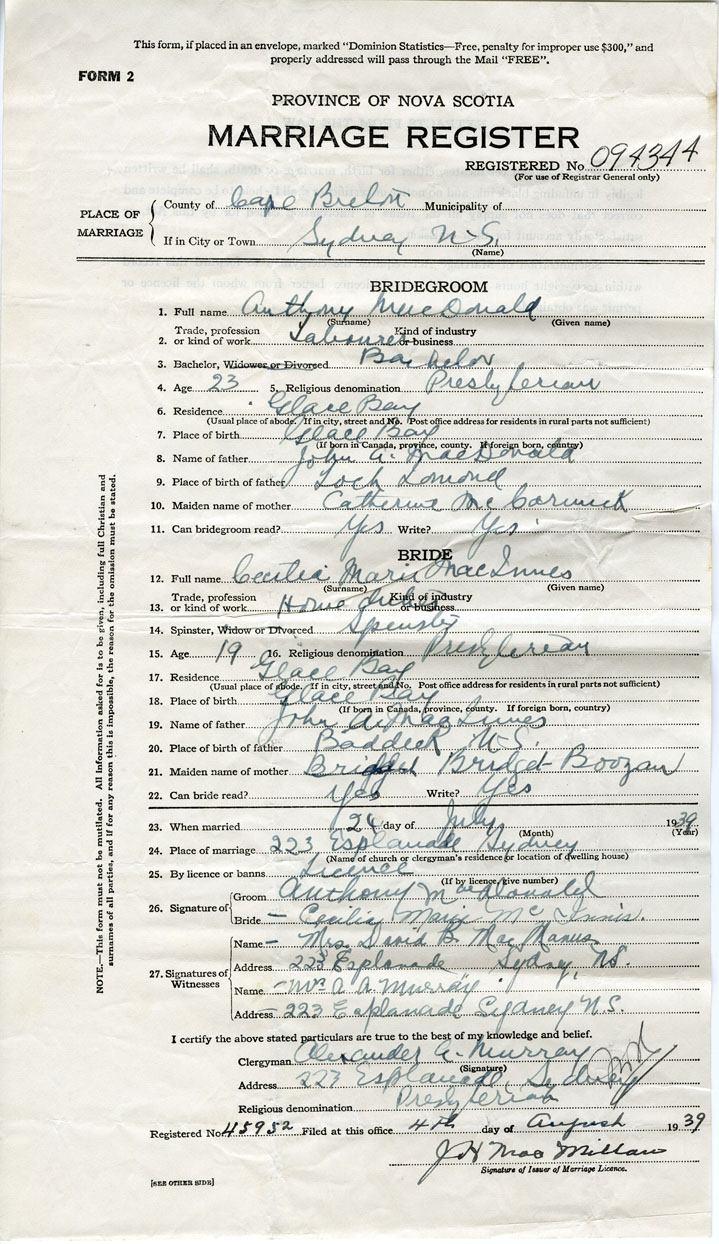 This form, if placed in an envelope, marked "Dominion Statistics—Free, penalty for improper use $300," and
properly addressed will pass through the Mail "FREE".
FORM 2
PROVINCE OF NOVA SCOTIA
MARRIAGE REGISTER
REGISTERED No. 094344
(For use of Registrar General only)
PLACE OF MARRIAGE
County of Cape Breton Municipality of
If in City or Town Sydney N.S.
(Name)
BRIDEGROOM
1. Full name Anthony MacDonald
(Surname) (Given name)
2. Trade, profession or kind of work Labourer Kind of industry or business
3. Bachelor, Widower or Divorced Bachelor
4. Age 23 5. Religious denomination Presbyterian
6. Residence Glace Bay
(Usual place of abode. If in city, street and No. Post office address for residents in rural parts not sufficient)
7. Place of birth Glace Bay
(If born in Canada, province, county. If foreign born, country)
8. Name of father John A. MacDonald
9. Place of birth of father Loch Lomond
10. Maiden name of mother Catherine McCormick
11. Can bridegroom read? Yes Write? Yes
BRIDE
12. Full name Cecilia Marie MacInnes
(Surname) (Given name)
13. Trade, profession or kind of work Home Kind of industry or business
14. Spinster, Widow or Divorced Spinster
15. Age 19 16. Religious denomination Presbyterian
17. Residence Glace Bay
(Usual place of abode. If in city, street and No. Post office address for residents in rural parts not sufficient)
18. Place of birth Glace Bay
(If born in Canada, province, county. If foreign born, country)
19. Name of father John A. MacInnes
20. Place of birth of father Baddeck N.S.
21. Maiden name of mother Bridget Bridget Boozan
22. Can bride read? Yes Write? Yes
23. When married 24 day of July 1939
(Month) (Year)
24. Place of marriage 223 Esplanade Sydney
(Name of church or clergyman's residence or location of dwelling house)
25. By licence or banns Licence
(If by licence, give number)
26. Signature of
Groom Anthony MacDonald
Bride Cecilia Marie McInnis.
27. Signatures of Witnesses
Name Mrs David B. MacManus
Address 223 Esplanade Sydney, N.S.
Name Mrs A. A. Murray
Address 223 Esplanade Sydney N.S.
I certify the above stated particulars are true to the best of my knowledge and belief.
Clergyman Alexander A. Murray
(Signature)
Address 223 Esplanade, Sydney
Religious denomination Presbyterian
Registered No. 45952 Filed at this office 4th day of August 1939
J H MacMillan
Signature of Issuer of Marriage Licence.
[SEE OTHER SIDE]
NOTE.—This form must not be mutilated. All information asked for is to be given, including full Christian and
surnames of all parties, and if for any reason this is impossible, the reason for the omission must be stated.